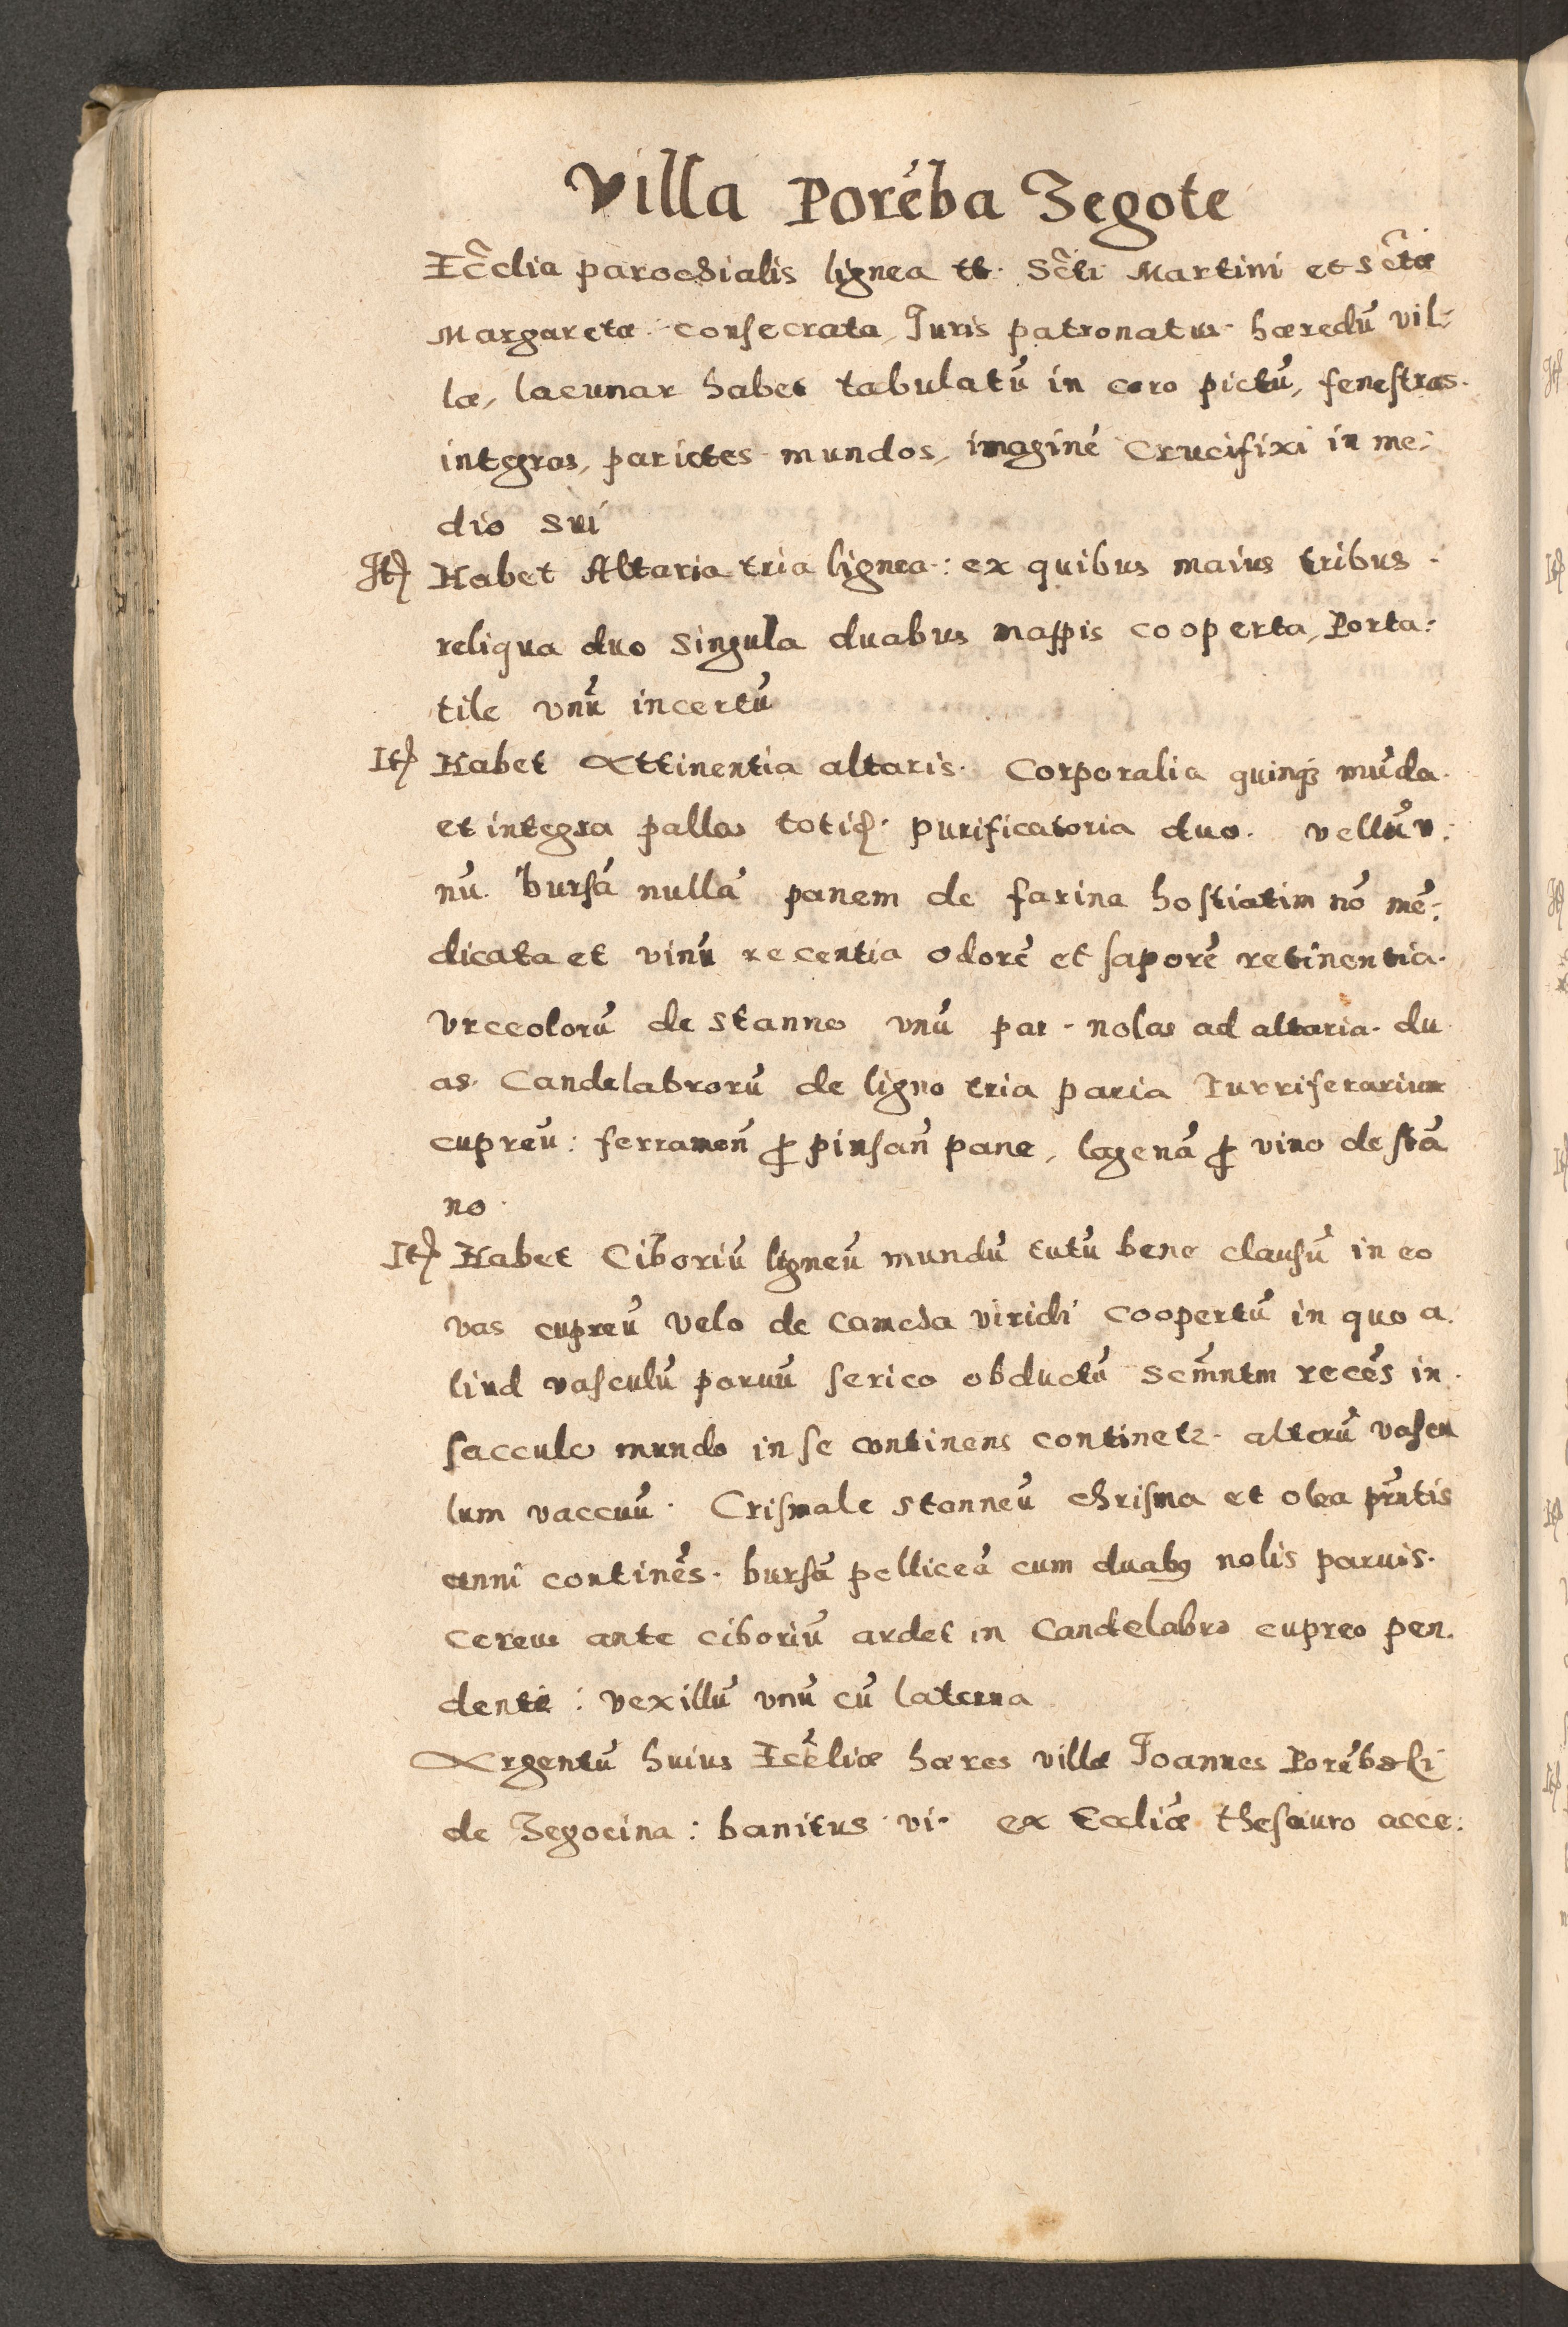 Villa Porēba Zegote
Ecc̃lia parochialis lignea tt. Sc̃ti Martini et Sc̃tæ
Margaretæ consecrata, Iuris patronatus hæredū vil=
læ, lacunar habet tabulatū in coro pictū, fenestras
integras, parietes mundos, imaginē Crucifixi in me=
dio sui
Itē Habet Altaria tria lignea: ex quibus maius tribus
reliqua duo singula duabus mappis cooperta, Porta=
tile vnū incertū
Itē Habet Attinentia altaris. Corporalia quinq3 mūda
et integra pallas totiđ. purificatoria duo. vellū v=
nū. bursā nullā panem de farina hostiatim nō mē=
dicata et vinū recentia odorē et saporē retinentia.
Vrceolorū de stanno vnū par. nolas ad altaria du
as. Candelabrorū de ligno tria paria Turriferarium
cupreū: ferramen̄ ꝓ pinsan̄ pane, lagenā ꝓ vino de stā
no.
Itē Habet Ciboriū ligneū mundū tutū bene clausū in eo
vas cupreū velo de cameha viridi coopertū in quo a=
liud vasculū paruū serico obductū Scm̄ntm recēs in
sacculo mundo in se continens continetz. alterū vascu
lum vaccuū. Crismale stanneū chrisma et olea prn̄tis
anni continēs. bursā pelliceā cum duabꝰ nolis paruis.
cereus ante ciboriū ardet in Candelabro cupreo pen=
denti: vexillū vnū cū laterna
Argentū huius Eccl̄iæ hæres villæ Ioannes Porēbski
de Zegocina: banitus vi. ex Eccliæ thesauro acce=